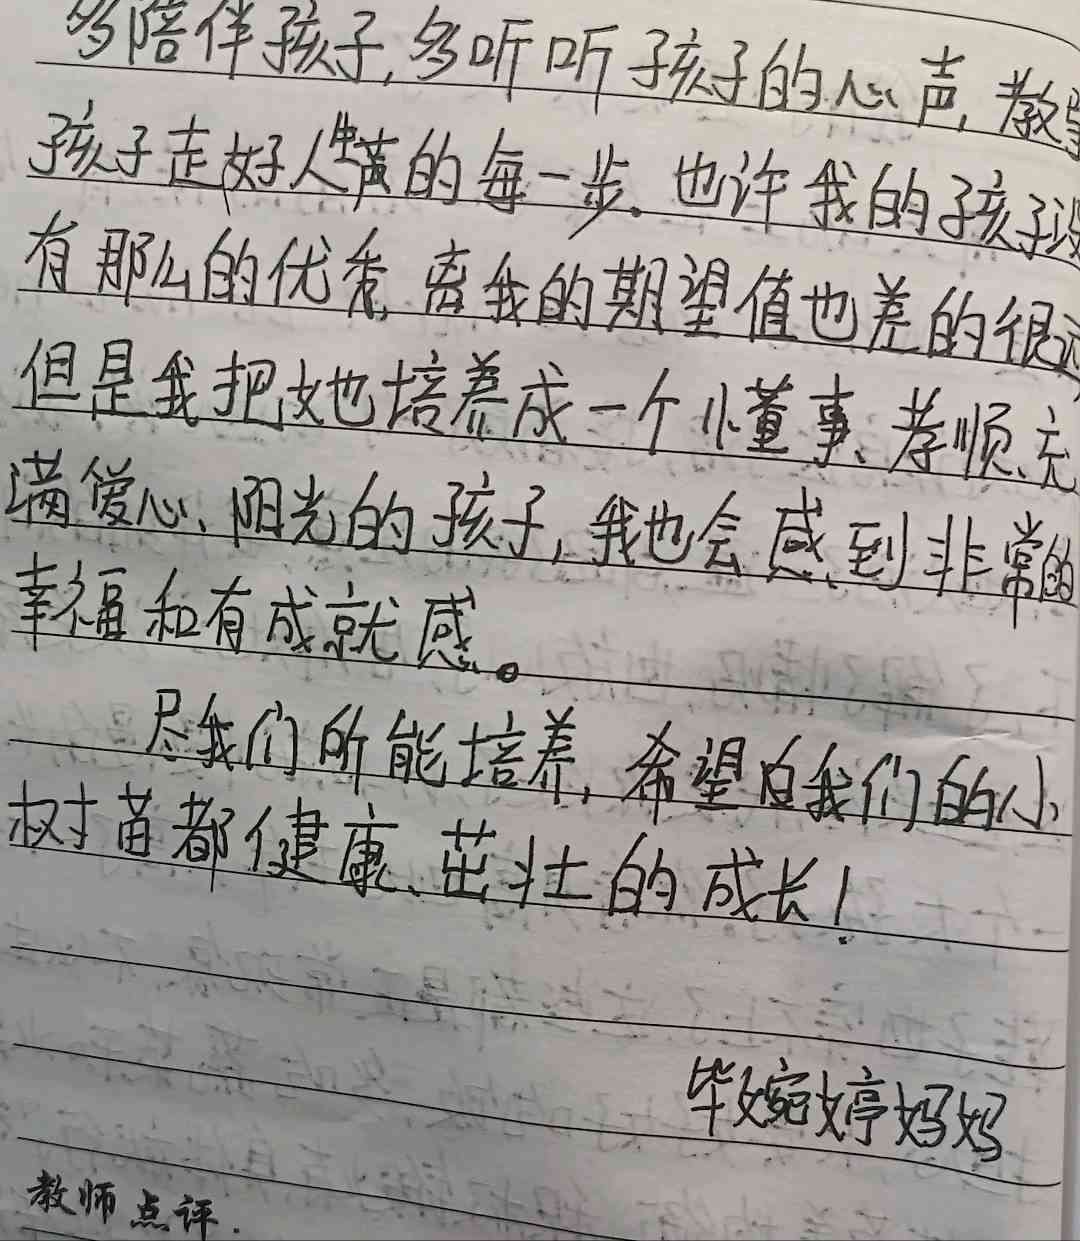 多陪伴孩子,多听听孩子的心声,教导
孩子走好人生的每一步。也许我的孩子没
有那么的优秀,离我的期望值也差的很远
但是我把她培养成一个小董事、孝顺、充
满爱心、阳光的孩子,我也会感到非常的
幸福和有成就感。
尽我们所能培养,希望白我们的小
树苗都健康、茁壮的成长!
毕婉婷妈妈
教师点评.